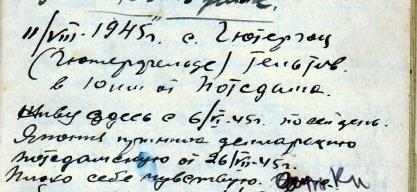 11/VIII-1945г. с. Гютергоц
(Гютерфельде) Гельтов.
в 10 км от Потсдама.
Живу здесь с 6/VI-45г. по сей день.
Япония приняла декларацию
потсдамскую от 26/VII-45г.
Плохо себе чувствую.